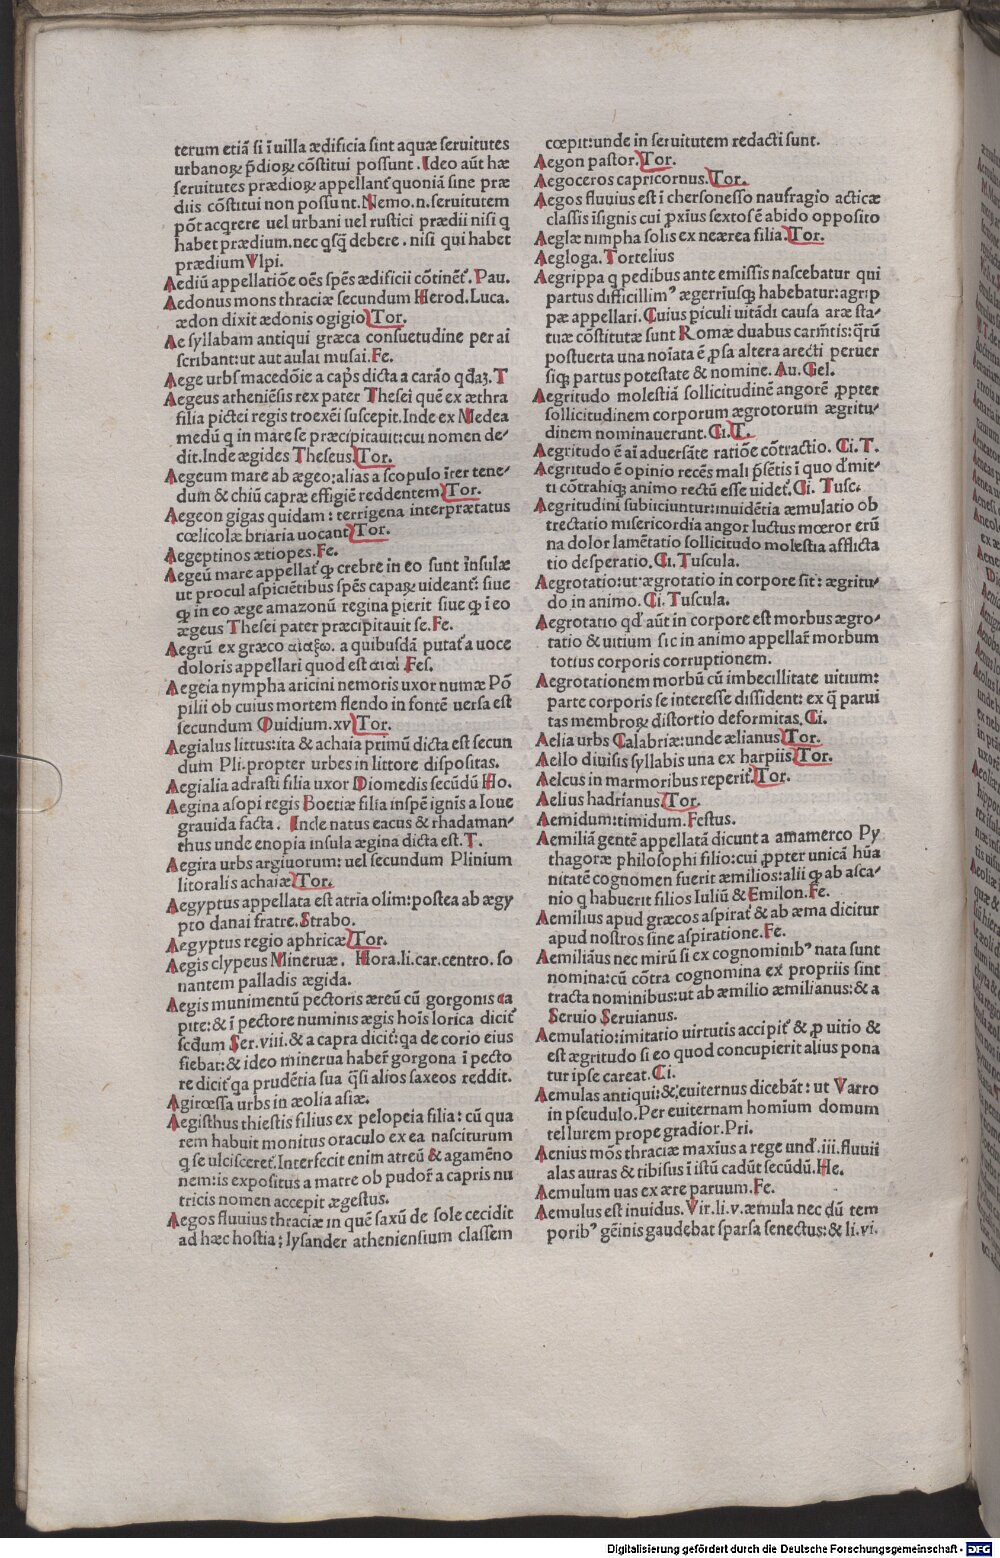 terum etiã si ĩ uilla ædificia sint aquæ seruitutes
urbanoꝝ p̃dioꝝ cõstitui possunt. Ideo aũt hæ
seruitutes prædioꝝ appellant᷑ quoniã sine præ
diis cõstitui non possunt. Nemo.n.seruitutem
põt acqrere uel urbani uel rustici prædii nisi q
habet prædium.nec qsq̃ debere. nisi qui habet
prædium Vlpi.
Aediũ appellatiõe oẽs spẽs ædificii cõtinet᷑. Pau.
Aedonus mons thraciæ secundum Herod. Luca.
ædon dixit ædonis ogigio Tor.
Ae syllabam antiqui græca consuetudine per ai
scribant:ut aut aulai musai.Fe.
Aege urbs macedõie a capis dicta a carão qdaȝ. T
Aegeus atheniẽsis rex pater Thesei quẽ ex æthra
filia pictei regis troexẽi suscepit. Inde ex Medea
medũ q in mare se præcipitauit:cui nomen de⸗
dit. Inde ægides Theseus Tor.
Aegeum mare ab ægeo:alias a scopulo ĩter tene⸗
dum & chiũ capræ effigiẽ reddentem Tor.
Aegeon gigas quidam: terrigena interprætatus
cœlicolæ briaria uocant Tor.
Aegeptinos ætiopes. Fe.
Aegeũ mare appellat᷑ ꝙ crebre in eo sunt ĩnsulæ
ut procul aspiciẽtibus spẽs capaꝝ uideant᷑: siue
ꝙ in eo æge amazonũ regina pierit siue ꝙ ĩ eo
ægeus Thesei pater præcipitauit se. Fe.
Aegrũ ex græco a quibusdã putat᷑ a uoce
doloris appellari quod est αιαι Fes.
Aegeia nympha aricini nemoris uxor numæ Põ
pilii ob cuius mortem flendo in fontẽ uersa est
secundum Ouidium.xv Tor.
Aegialus littus:ita & achaia primũ dicta est secun
dum Pli.propter urbes in littore dispositas.
Aegialia adrasti filia uxor Diomedis secũdũ Ho.
Aegina asopi regis Boetiæ filia inspẽ ignis a Ioue
grauida facta. Inde natus eacus & rhadaman⸗
thus unde enopia insula ægina dicta est. T.
Aegira urbs argiuorum: uel secundum Plinium
litoralis achaiæ Tor.
Aegyptus appellata est atria olim:postea ab ægy
pto danai fratre. Strabo.
Aegyptus regio aphricæ Tor.
Aegis clypeus Mineruæ. Hora.li.car.centro. so
nantem palladis ægida.
Aegis munimentũ pectoris æreũ cũ gorgonis ca
pite:& ĩ pectore numinis ægis hoĩs lorica dicit᷑
scdum Ser.viii.& a capra dicit᷑:qa de corio eius
fiebat:& ideo minerua haber᷑ gorgona ĩ pecto
re dicit᷑ qa prudẽtia sua q̃si alios saxeos reddit.
Agirœssa urbs in æolia asiæ.
Aegisthus thiestis filius ex pelopeia filia: cũ qua
rem habuit monitus oraculo ex ea nasciturum
q se ulcisceret᷑. Interfecit enim atreũ & agamẽno
nem:is expositus a matre ob pudor᷑ a capris nu
tricis nomen accepit ægestus.
Aegos fluuius thraciæ in quẽ saxũ de sole cecidit
ad hæc hostia; lysander atheniensium classem
cœpit:unde in seruitutem redacti sunt.
Aegon pastor. Tor.
Aegoceros capricornus. Tor.
Aegos fluuius est ĩ chersonesso naufragio acticæ
classis ĩsignis cui ꝓxius sextos ẽ abido opposito
Aeglæ nimpha solis ex neærea filia. Tor.
Aegloga. Tortelius
Aegrippa q pedibus ante emissis nascebatur qui
partus difficillimꝰ ægerriusq; habebatur:agrip
pæ appellari. Cuius piculi uitãdi causa aræ sta⸗
tuæ cõstitutæ sunt Romæ duabus carm̃tis:qrũ
postuerta una noĩata ẽ ꝓsa altera arecti peruer
siq; partus potestate & nomine. Au. Gel.
Aegritudo molestiã sollicitudinẽ angorẽ ꝓpter
sollicitudinem corporum ægrotorum ægritu⸗
dinem nominauerunt. Ci. T.
Aegritudo ẽ aĩ aduersãte ratiõe cõtractio. Ci. T.
Aegritudo ẽ opinio recẽs mali p̃sẽtis ĩ quo d'mit⸗
ti cõtrahiq; animo rectũ esse uidet᷑. Ci. Tusc.
Aegritudini subiiciuntur:inuidẽtia æmulatio ob
trectatio misericordia angor luctus mœror erũ
na dolor lamẽtatio sollicitudo molestia afflicta
tio desperatio. Ci. Tuscula.
Aegrotatio:ut ægrotatio in corpore sit: ægritu⸗
do in animo. Ci. Tuscula.
Aegrotatio qd' aũt in corpore est morbus ægro⸗
tatio & uitium sic in animo appellar᷑ morbum
totius corporis corruptionem.
Aegrotationem morbũ cũ imbecillitate uitium:
parte corporis se interesse dissident: ex q̃ parui
tas membroꝝ distortio deformitas. Ci.
Aelia urbs Calabriæ:unde ælianus Tor.
Aello diuisis syllabis una ex harpiis Tor.
Aelcus in marmoribus reperit᷑. Tor.
Aelius hadrianus Tor.
Aemidum:timidum. Festus.
Aemiliã gentẽ appellatã dicunt a amamerco Py
thagoræ philosophi filio:cui ꝓpter unicã hũa
nitatẽ cognomen fuerit æmilios:alii ꝙ ab asca⸗
nio q habuerit filios Iuliũ & Emilon. Fe.
Aemilius apud græcos aspirat᷑ & ab æma dicitur
apud nostros sine aspiratione. Fe.
Aemiliãus nec mirũ si ex cognominibꝰ nata sunt
nomina:cũ cõtra cognomina ex propriis sint
tracta nominibus:ut ab æmilio æmilianus:& a
Seruio Seruianus.
Aemulatio:imitatio uirtutis accipit᷑ & ꝓ uitio &
est ægritudo si eo quod concupierit alius pona
tur ipse careat. Ci.
Aemulas antiqui:& euiternus dicebãt: ut Varro
in pseudulo. Per euiternam homium domum
tellurem prope gradior. Pri.
Aenius mõs thraciæ maxius a rege und'.iii.fluuii
alas auras & tibisus ĩ istũ cadũt secũdũ. He.
Aemulum uas ex ære paruum. Fe.
Aemulus est inuidus. Vir.li.v.æmula nec dũ tem
poribꝰ gẽinis gaudebat sparsa senectus:& li.vi.
Digitalisierung gefördert durch die Deutsche Forschungsgemeinschaft - DFG